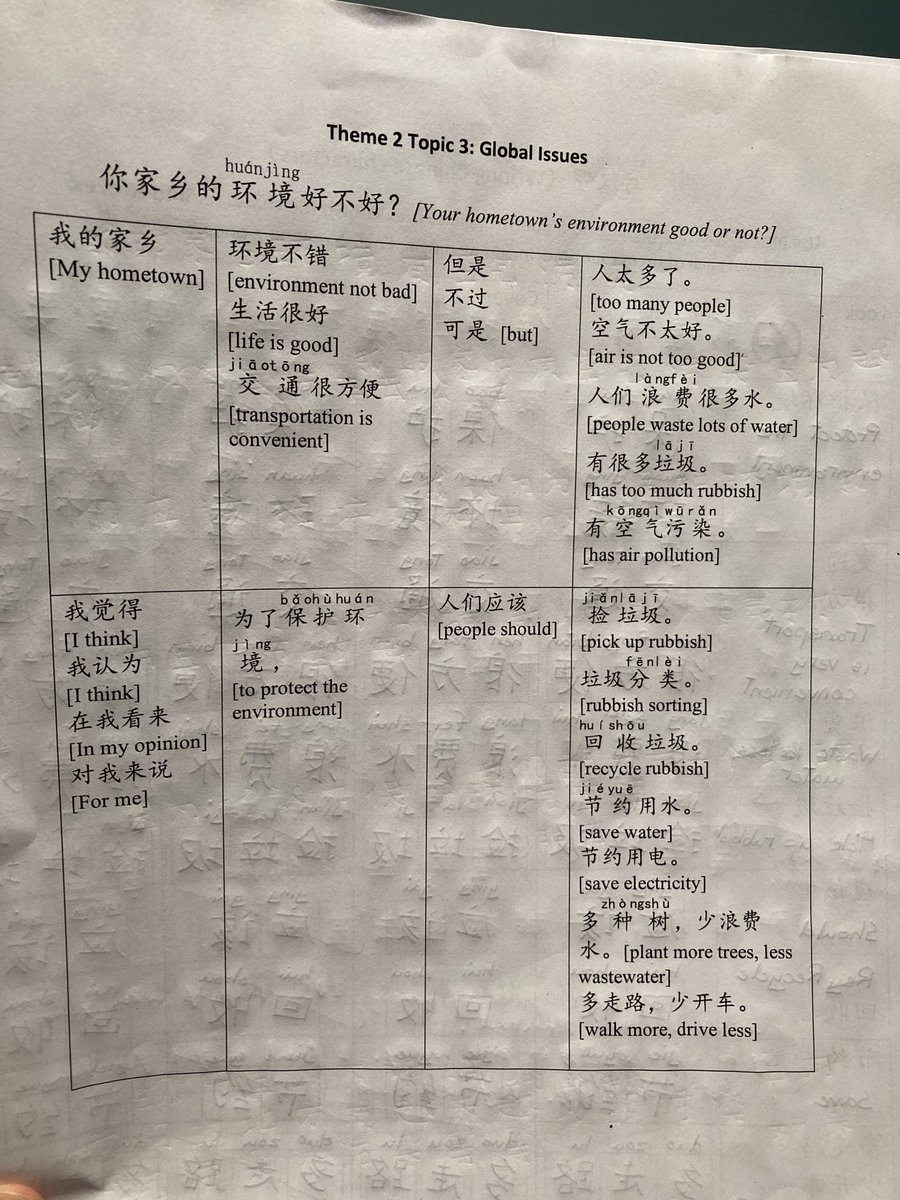 Theme 2 Topic 3: Global Issues
huánjìng
你家乡的环境好不好？[Your hometown's environment good or not?]
我的家乡
[My hometown]
环境不错
[environment not bad]
生活很好
[life is good]
jiāotōng
交通很方便
[transportation is
convenient]
但是
不过
可是 [but]
人太多了。
[too many people]
空气不太好。
[air is not too good]
làngfèi
人们浪费很多水。
[people waste lots of water]
lājī
有很多垃圾。
[has too much rubbish]
kōngqìwūrǎn
有空气污染。
[has air pollution]
我觉得
[I think]
我认为
[I think]
在我看来
[In my opinion]
对我来说
[For me]
bǎohùhuán
为了保护环
jìng
境，
[to protect the
environment]
人们应该
[people should]
jiǎnlājī
捡垃圾。
[pick up rubbish]
fēnlèi
垃圾分类。
[rubbish sorting]
huíshōu
回收垃圾。
[recycle rubbish]
jiéyuē
节约用水。
[save water]
节约用电。
[save electricity]
zhòngshù
多种树，少浪费
水。[plant more trees, less
wastewater]
多走路，少开车。
[walk more, drive less]